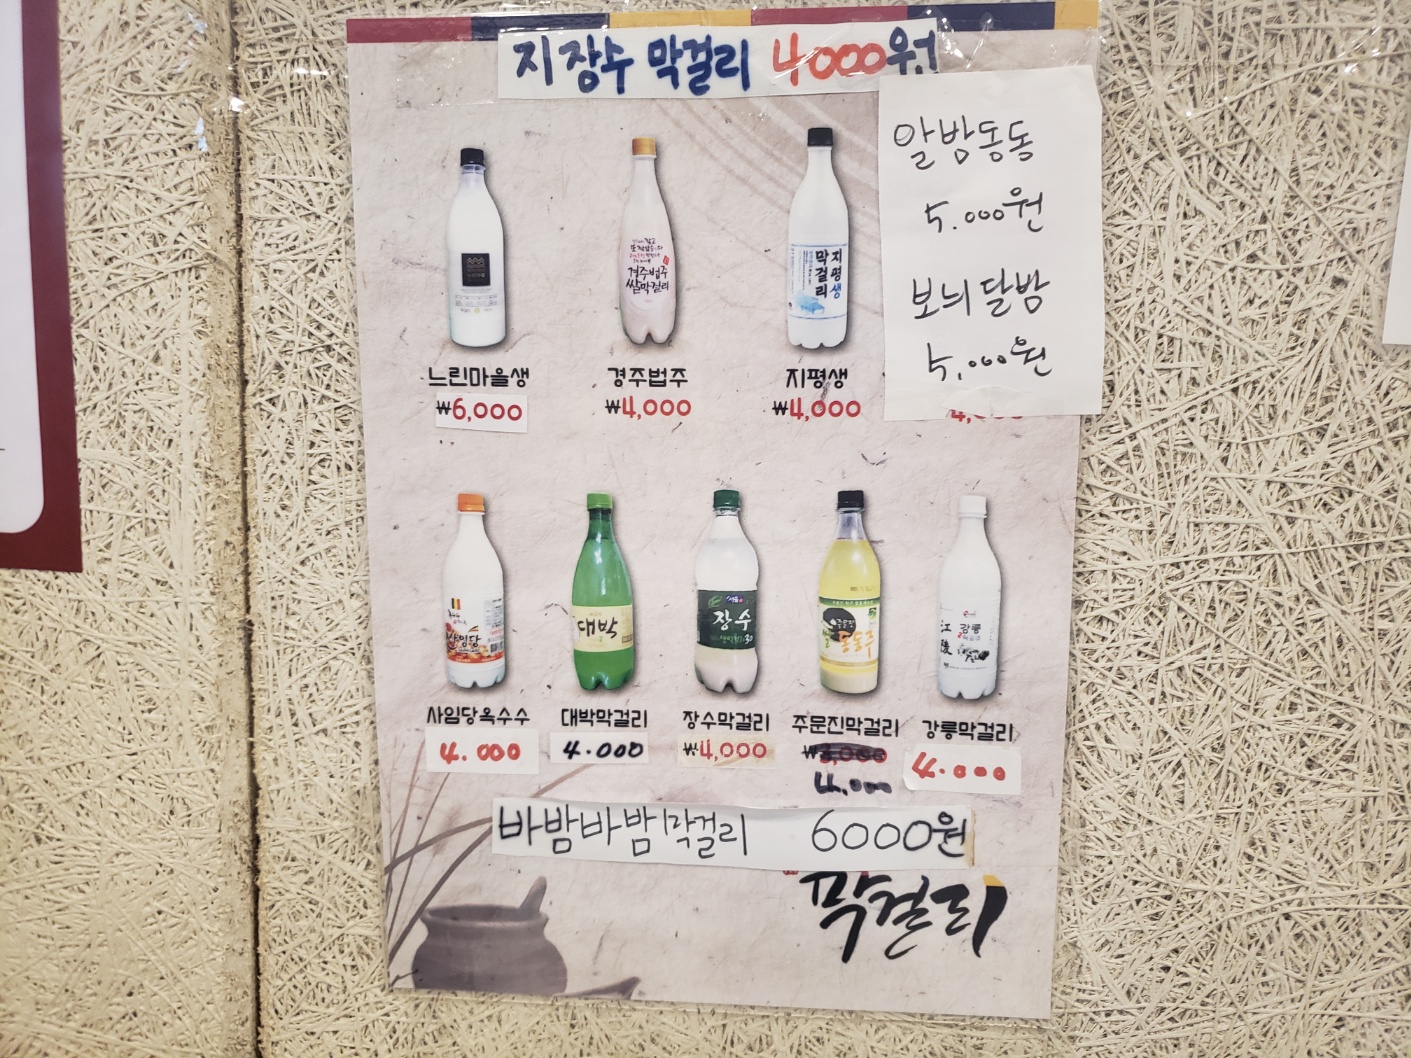 지장수 막걸리 4000원
알밤동동
5.000원
보늬달밤
5.000원
경주법주
쌀막걸리
지평생
막걸리
느린마을생
경주법주
지평생
₩6,000
₩4,000
₩4,000
사임당
대박
장수
동동주
江陵
강릉
사임당옥수수
대박막걸리
장수막걸리
주문진막걸리
강릉막걸리
4.000
4.000
₩4,000
4.000
4.000
바밤바밤막걸리 6000원
막걸리